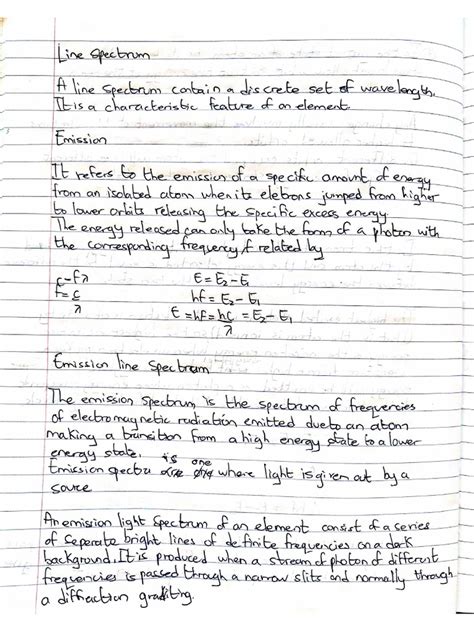 Line Spectrum
A line spectrum contain a discrete set of wavelength.
It is a characteristic feature of an element.
Emission
It refers to the emission of a specific amount of energy
from an isolated atom when its eletrons jumped from higher
to lower orbits releasing the specific excess energy
The energy released can only take the form of a photon with
the corresponding frequency f related by
c=fλ E = E2-E1
f=c/λ hf = E2-E1
E =hf=hc/λ = E2-E1
Emission line Spectrum
The emission spectrum is the spectrum of frequencies
of electromagnetic radiation emitted due to an atom
making a transition from a high energy state to a lower
energy state.
Emission spectra is one where light is given out by a
source
An emission light spectrum of an element consist of a series
of seperate bright lines of definite frequencies on a dark
background. It is produced when a stream of photon of different
frequencies is passed through a narrow slits and normally through
a diffraction gradting.